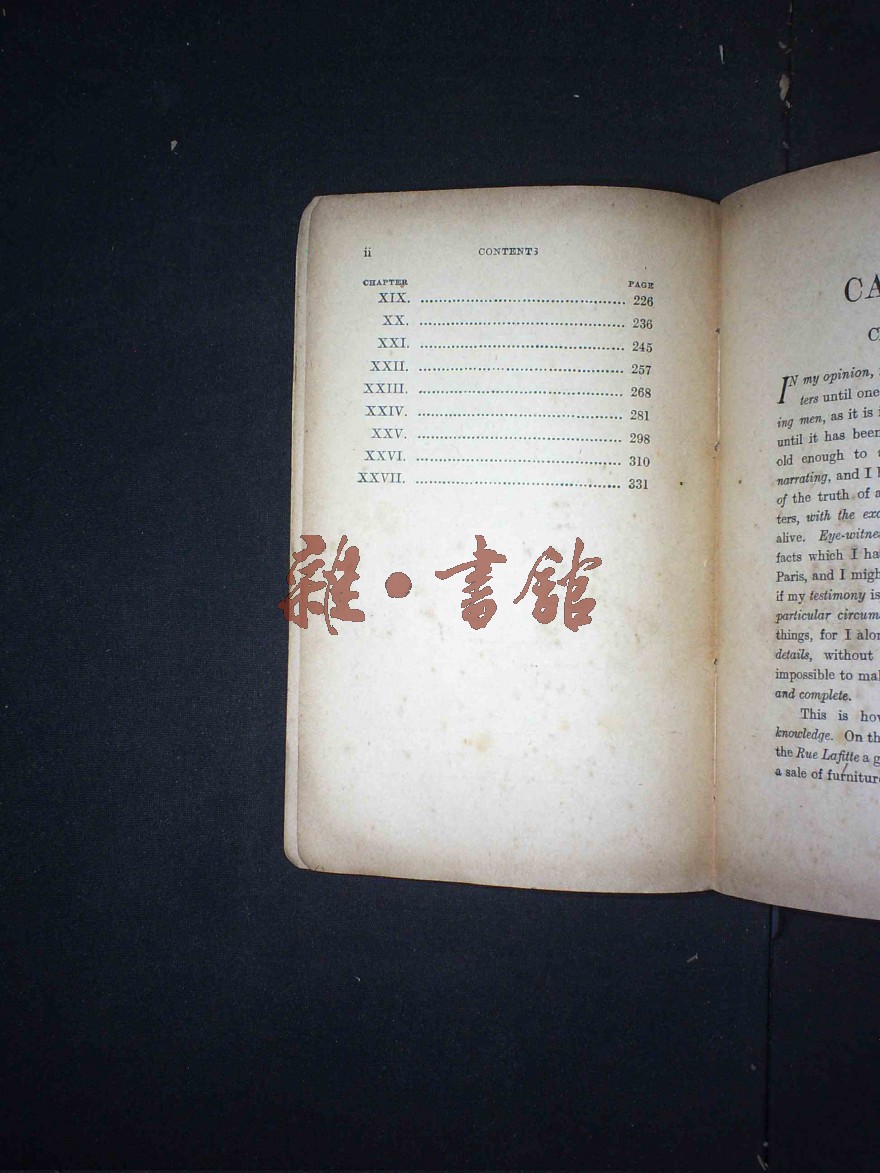 ii CONTENTS
CHAPTER PAGE
XIX. 226
XX. 236
XXI. 245
XXII. 257
XXIII. 268
XXIV. 281
XXV. 298
XXVI. 310
XXVII. 331
雜·書館
CA
C
IN my opinion,
ters until one
ing men, as it is
until it has been
old enough to
narrating, and I
of the truth of a
ters, with the exc
alive. Eye-witne
facts which I ha
Paris, and I migh
if my testimony is
particular circum
things, for I alon
details, without
impossible to mak
and complete.
This is how
knowledge. On th
the Rue Lafitte a g
a sale of furniture